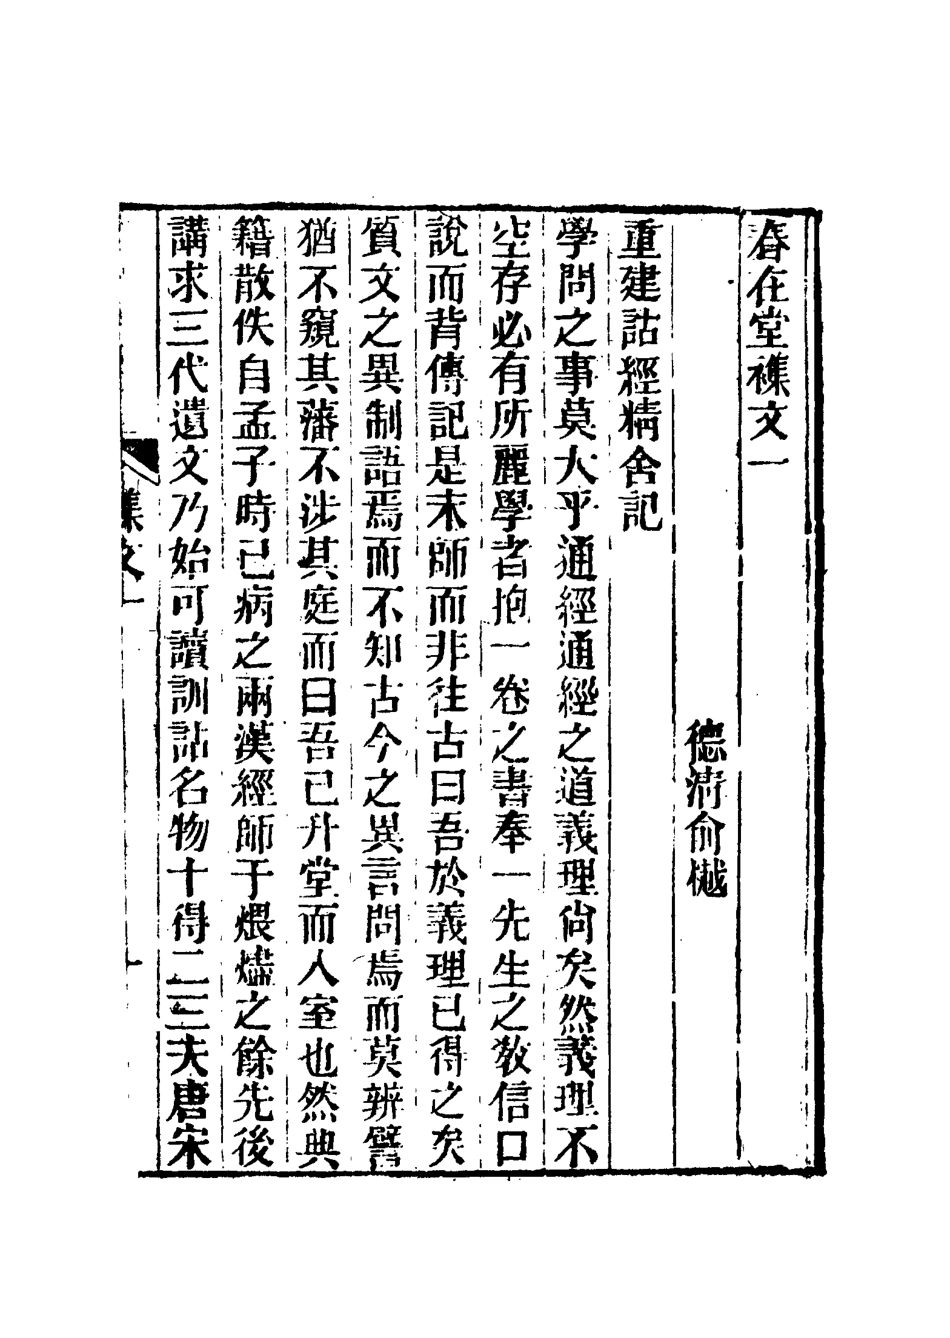 春在堂襍文一
德清俞樾
重建詁經精舍記
學問之事莫大乎通經通經之道義理尙矣然義理不
空存必有所麗學者抱一卷之書奉一先生之教信口
說而背傳記是末師而非往古曰吾於義理已得之矣
質文之異制語焉而不知古今之異言問焉而莫辨譬
猶不窺其藩不涉其庭而曰吾已升堂而入室也然典
籍散佚自孟子時已病之兩漢經師于煨燼之餘先後
講求三代遺文乃始可讀訓詁名物十得二三夫唐宋
文一